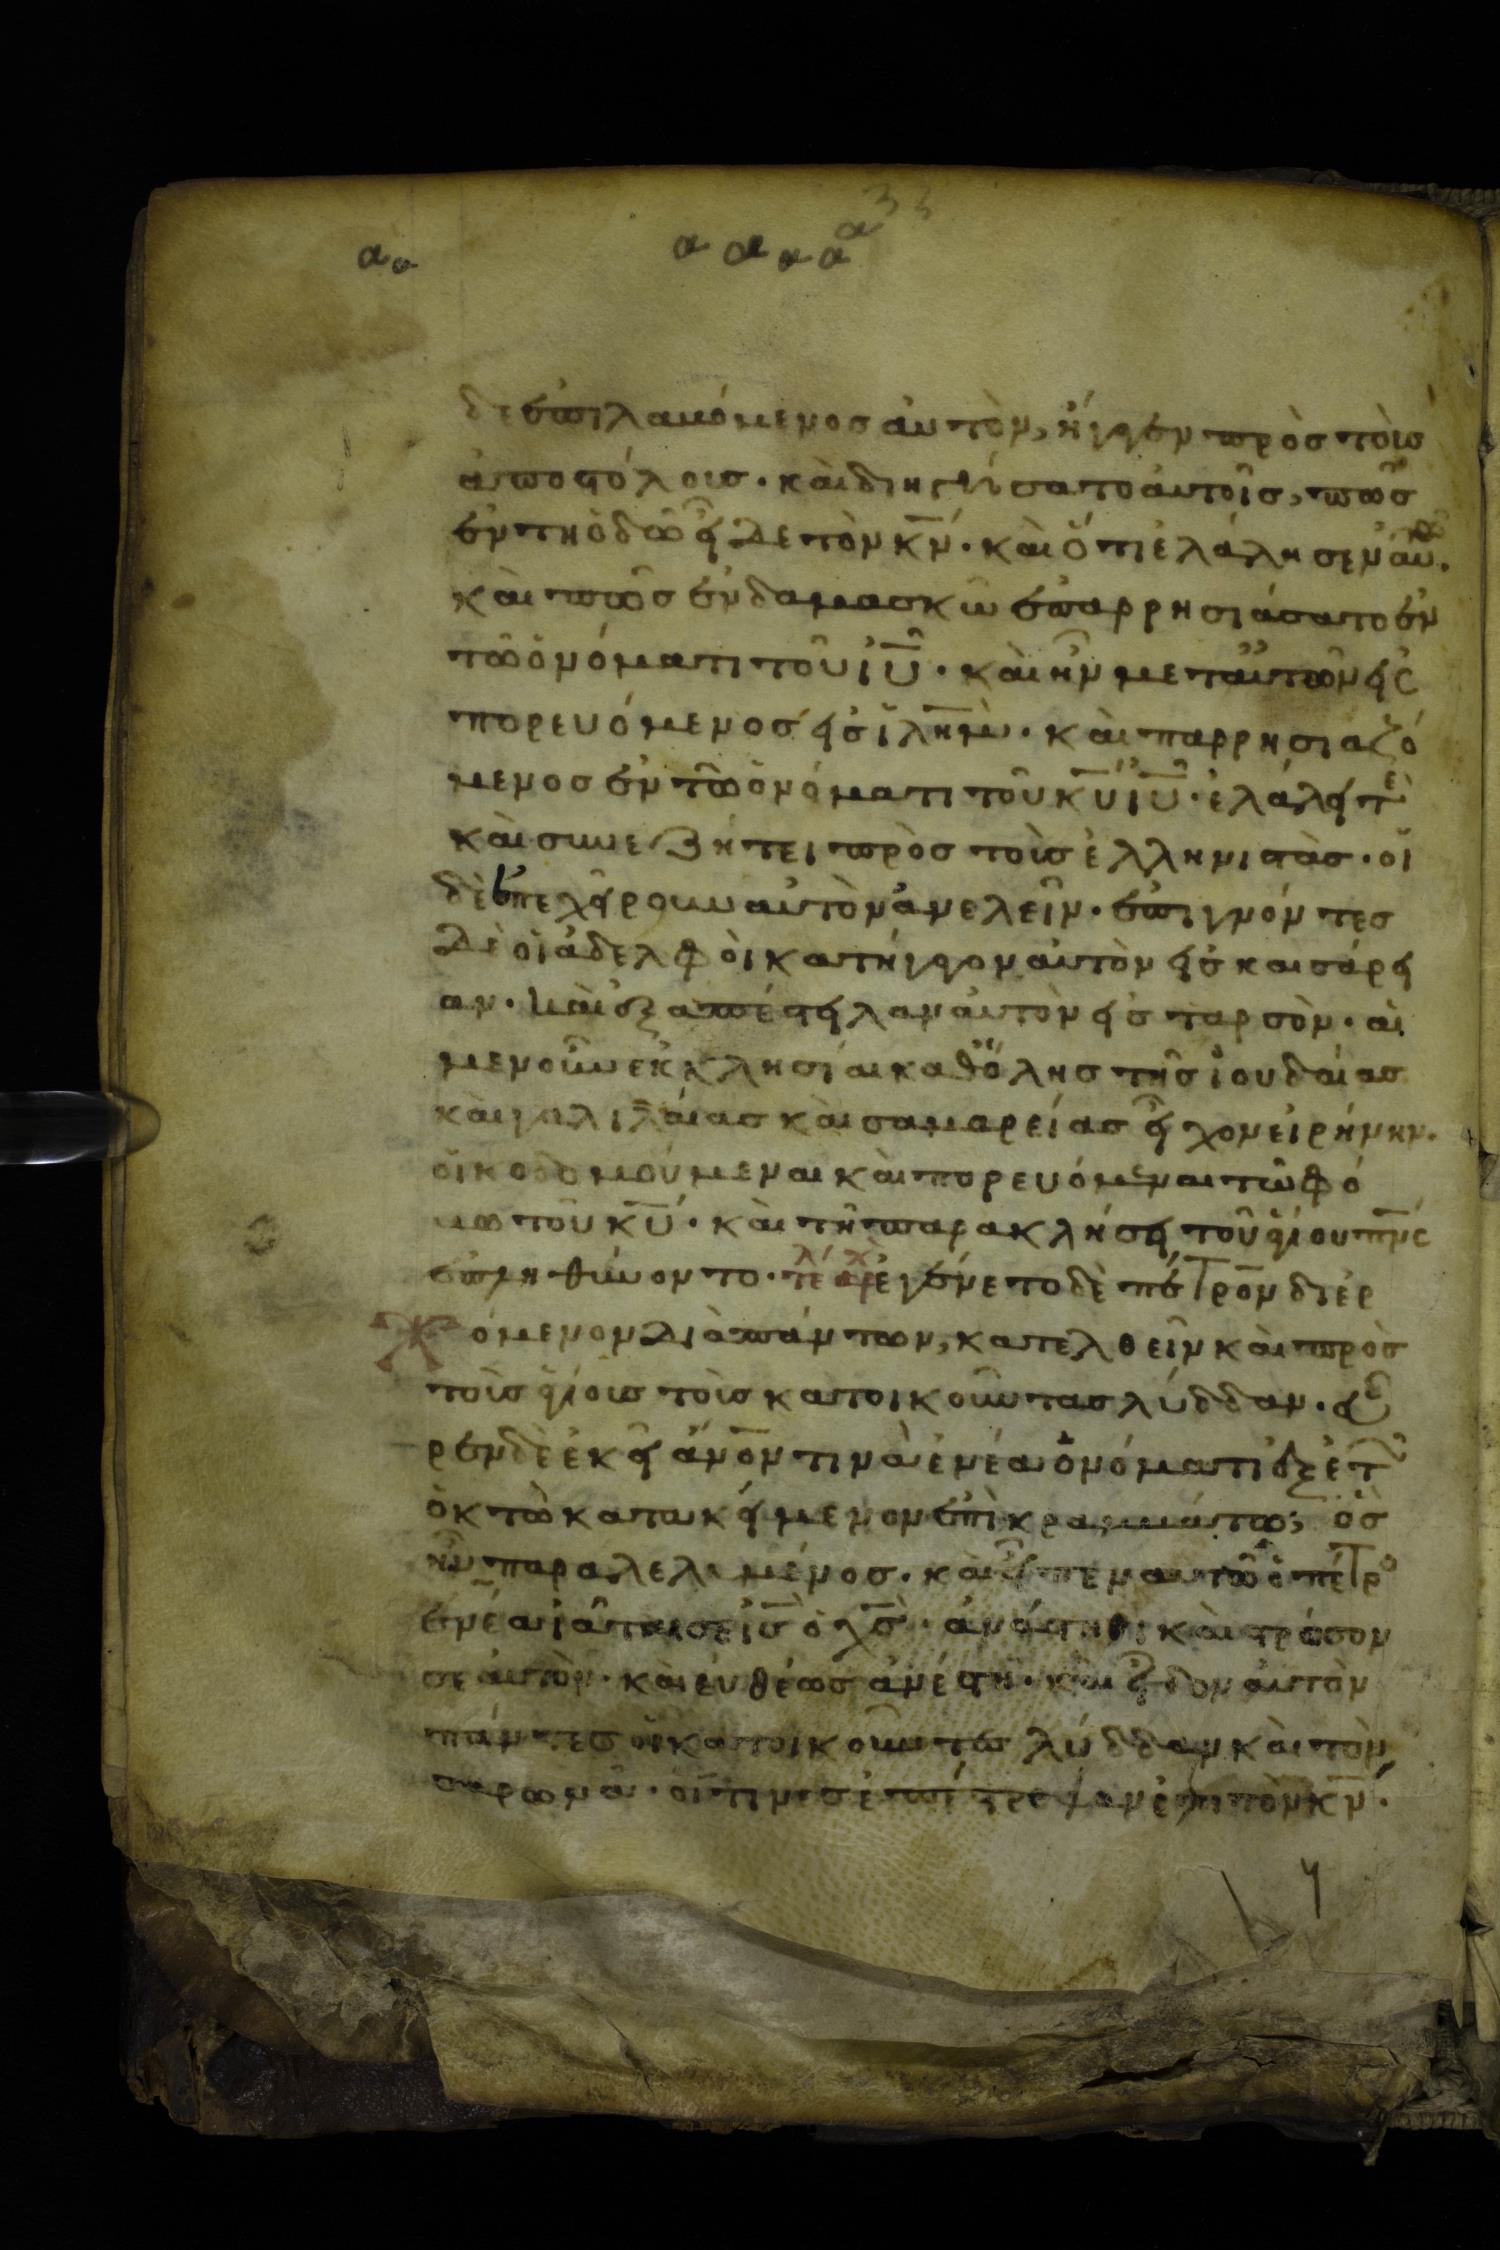 δε ἐπιλαμόμενος αὐτὸν, ἤγαγεν πρὸς τοὺς
ἀποστόλους. καὶ διηγήσατο αὐτοῖς, πῶς
ἐν τῇ ὁδῶ εἶδε τὸν κν̄. καὶ ὅτι ἐλάλησεν αὐτῶ.
καὶ πῶς ἐν δαμασκῶ ἐπαρρησιάσατο ἐν
τῶ ὀνόματι τοῦ ιῡ. καὶ ἦν μετ' αὐτῶν εἰσ
πορευόμενος εἰς ἰλη̄μ. καὶ παρρησιαζό
μενος ἐν τῶ ὀνόματι τοῦ κῡ ιῡ. ἐλάλει τε
καὶ συνεζήτει πρὸς τοὺς ἑλληνιστάς. οἱ
δὲ ἐπεχείρουν αὐτὸν ἀνελεῖν. ἐπιγνόντες
δὲ οἱ ἀδελφοὶ κατήγαγον αὐτὸν εἰς καισάρει
αν. καὶ ἐξαπέστειλαν αὐτὸν εἰς ταρσόν. αἱ
μὲν οὖν ἐκκλησίαι καθ' ὅλης τῆς ἰουδαίας
καὶ γαλιλαίας καὶ σαμαρείας εἶχον εἰρήνην.
οἰκοδομούμεναι καὶ πορευόμεναι τῶ φό
μω τοῦ κῡ. καὶ τῇ παρακλήσει τοῦ ἁγίου πν̄ς
ἐπληθύνοντο. τε ἀρχ ἐγένετο δὲ πέτρον διερ
χόμενον διὰ πάντων, κατελθεῖν καὶ πρὸς
τοὺς ἁγίους τοὺς κατοικοῦντας λύδδαν. εὗ
ρεν δὲ ἐκεῖ ἄνον̄ τινὰ ἐνέαν ὀνόματι ἐξ ἐτῶν
ὀκτὼ κατακείμενον ἐπὶ κραμμάτω, ὃς
ἦν παραλελυμένος. καὶ εἶπεν αὐτῶ ὁ πέτρο
ἐνέα ἰᾶται σε ῑς ὁ χς̄. ἀνάστηθι καὶ στρῶσον
σεαυτόν. καὶ εὐθέως ἀνέστη. καὶ εἶδον αὐτὸν
πάντες οἱ κατοικοῦντες λύδδαν καὶ τὸν
σαρωνᾶ. οἵτινες ἐπέστρεψαν ἐπὶ τὸν κν̄.